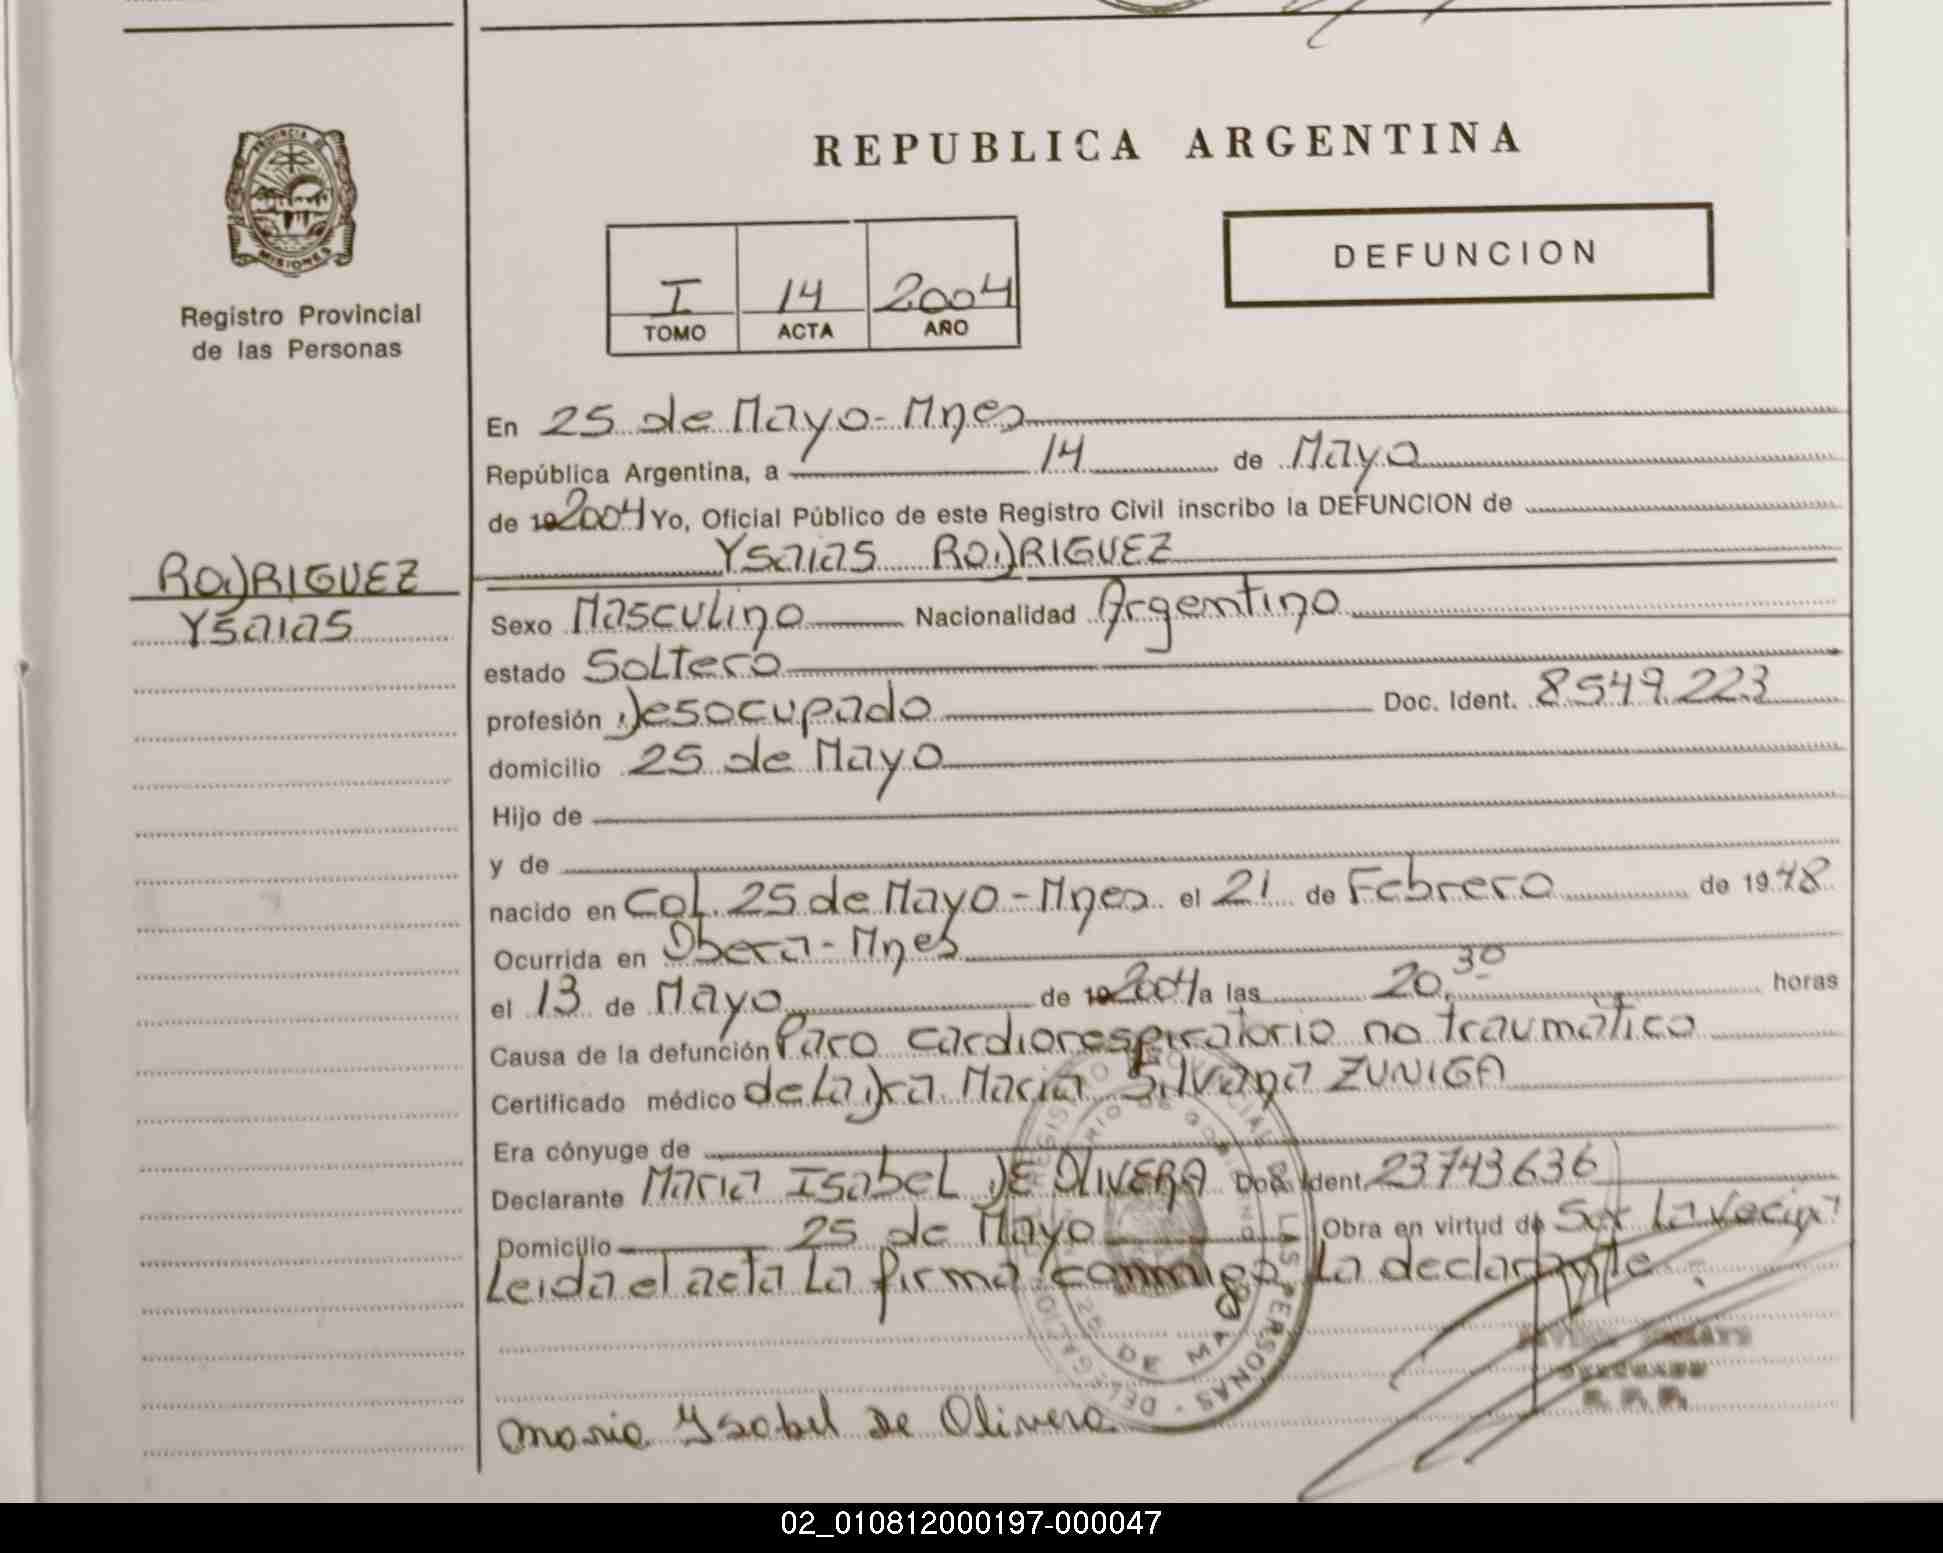 REPUBLICA ARGENTINA
PROVINCIA
MISIONES
Registro Provincial
de las Personas
I 14 2004
TOMO ACTA AÑO
DEFUNCION
En 25 de Mayo-Mnes
República Argentina, a 14 de Mayo
de 19 2004 Yo, Oficial Público de este Registro Civil inscribo la DEFUNCION de
Ysaias RODRIGUEZ
RODRIGUEZ
Ysaias
Sexo Masculino Nacionalidad Argentino
estado Soltero
profesión Desocupado Doc. Ident. 8549.223
domicilio 25 de Mayo
Hijo de
y de
nacido en Col. 25 de Mayo-Mnes. el 21 de Febrero de 1948
Ocurrida en Obera-Mnes
el 13 de Mayo de 19 2004 a las 20.30 horas
Causa de la defunción Paro cardiorespiratorio no traumático
Certificado médico de la Dra. Maria Silvana ZUNIGA
Era cónyuge de
Declarante Maria Isabel DE OLIVERA Doc. Ident. 23743636
Domicilio 25 de Mayo Obra en virtud de Ser la vecina
Leida el acta la firma conmigo la declarante
REGISTRO PROVINCIAL DE LAS PERSONAS - DELEGACION
MINISTERIO DE GOBIERNO
25 DE MAYO
Maria Ysabel De Olivera
02_010812000197-000047